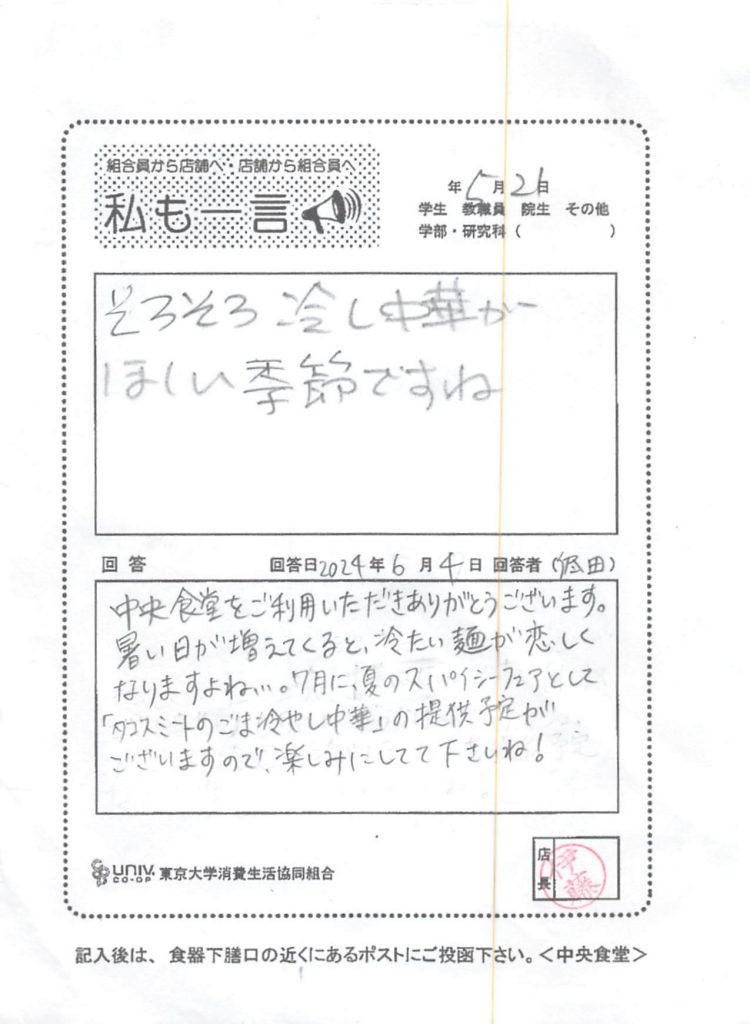 組合員から店舗へ・店舗から組合員へ
私も一言
年 5月26日
学生 教職員 院生 その他
学部・研究科( )
そろそろ 冷し中華が
ほしい季節ですね
回答 回答日2024年6月4日 回答者( 田)
中央食堂をご利用いただきありがとうございます。
暑い日が増えてくると、冷たい麺が恋しく
なりますよね…。7月に、夏のスパイシーフェアとして
「タコスミートのごま冷やし中華」の提供予定が
ございますので、楽しみにしてて下さいね!
UNIV. CO-OP 東京大学消費生活協同組合
店長 伊藤
記入後は、食器下膳口の近くにあるポストにご投函下さい。<中央食堂>